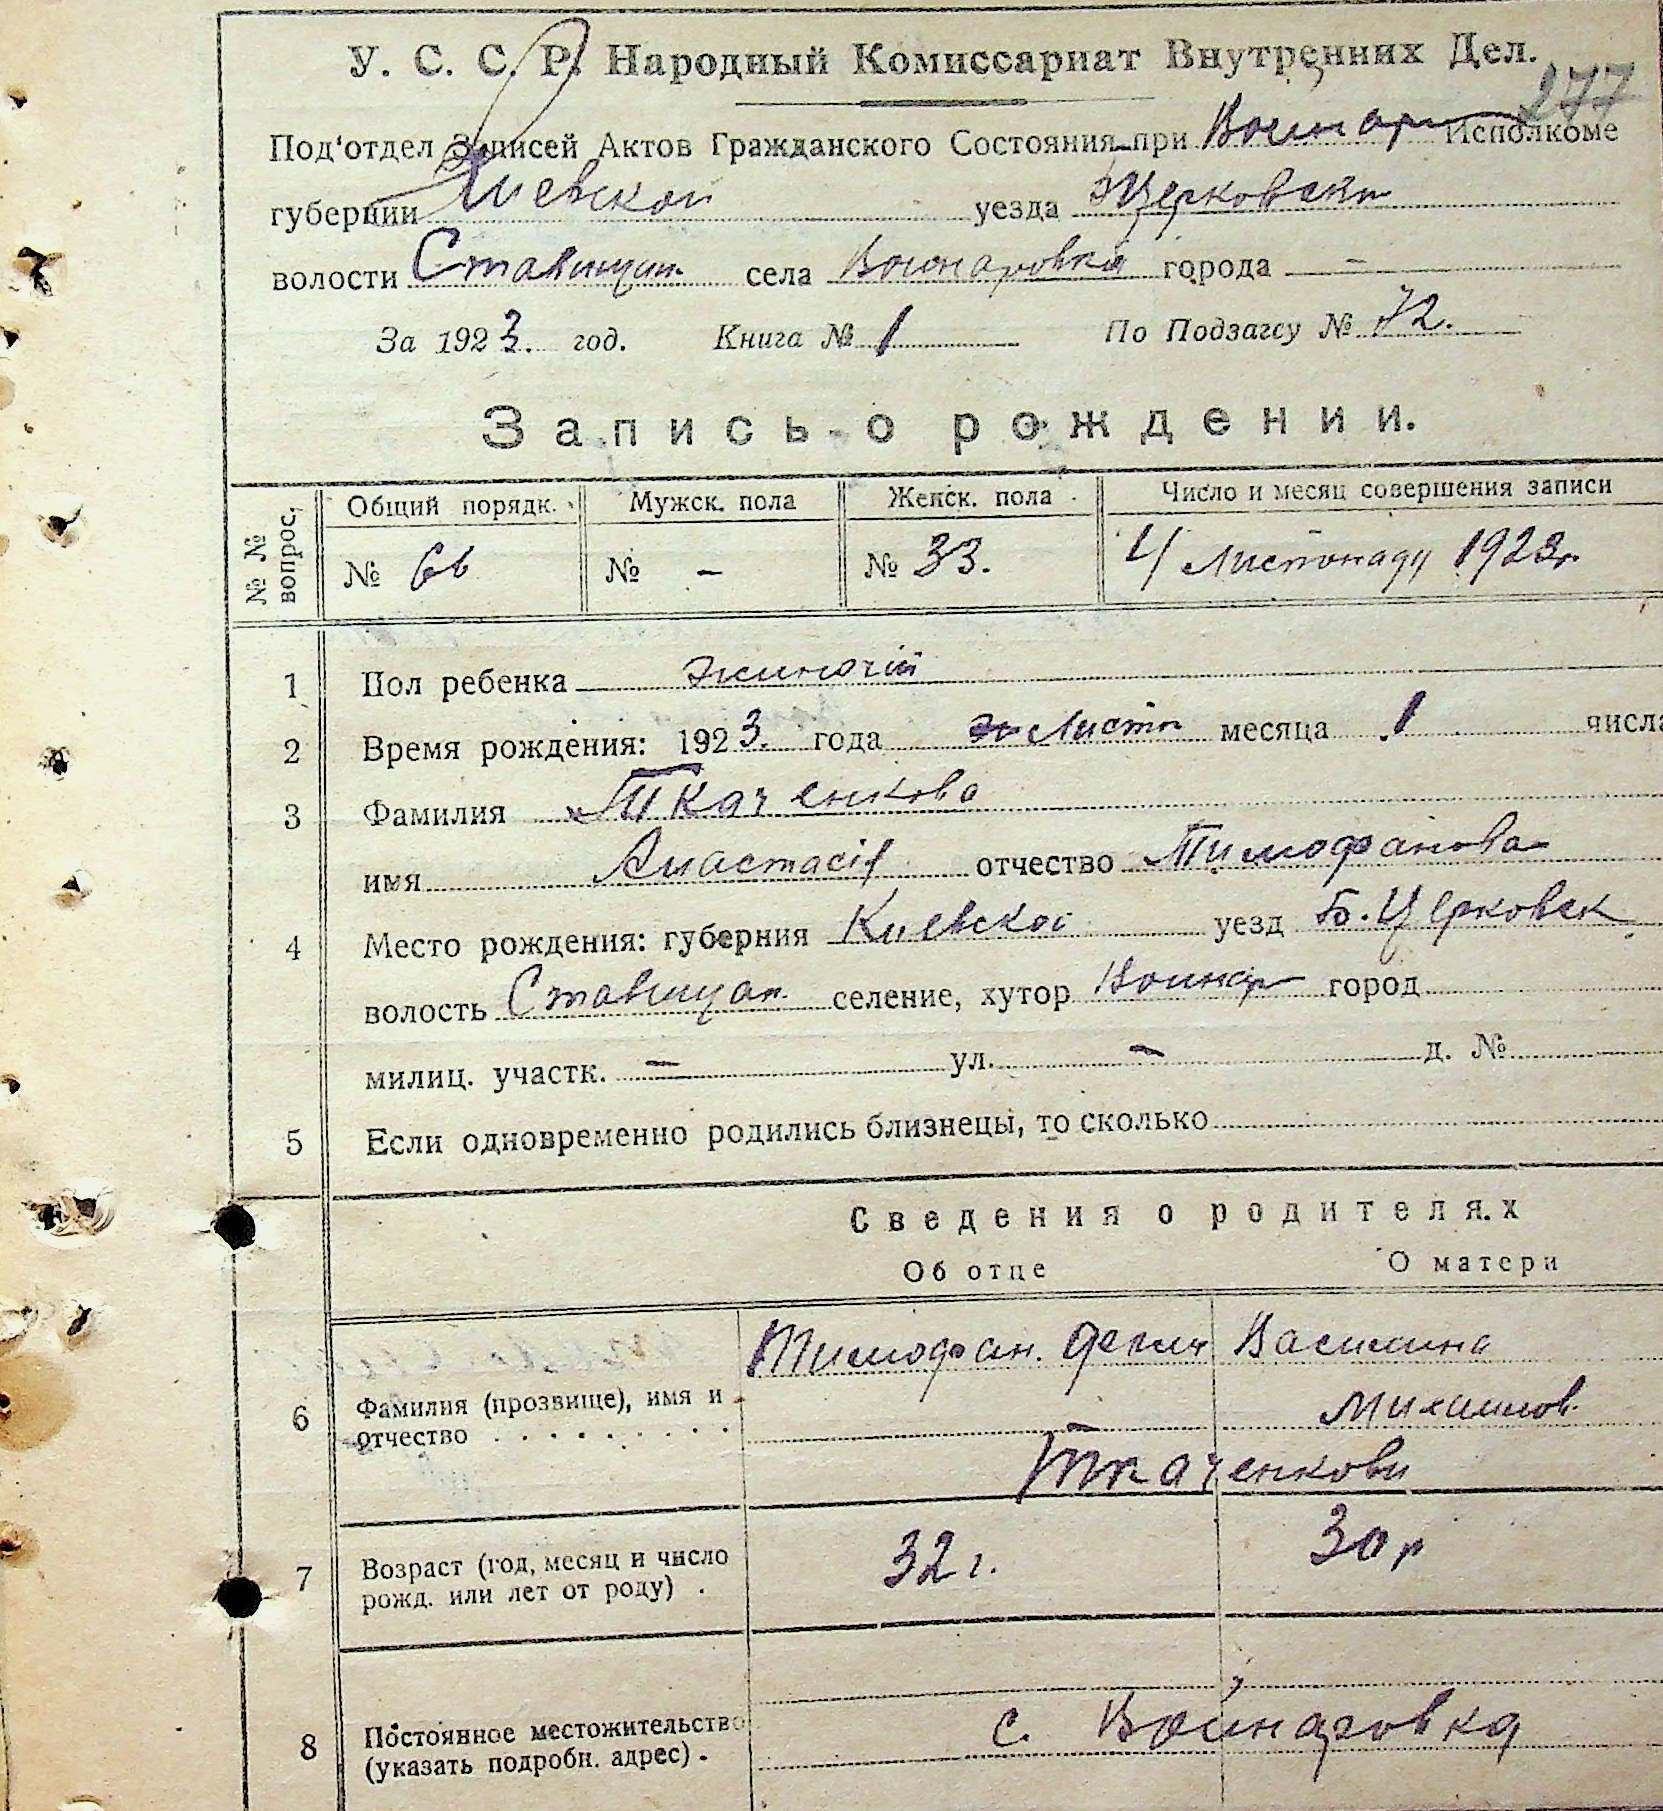 У. С. С. Р. Народный Комиссариат Внутренних Дел.
277
Под'отдел Записей Актов Гражданского Состояния при Войнар Исполкоме
губернии Киевской уезда Бцерковск
волости Ставищан. села Войнаровка города —
За 1923. год. Книга № 1 По Подзагсу № 72.
Запись о рождении.
№ № вопрос. Общий порядк. Мужск. пола Женск. пола Число и месяц совершения записи
№ 66 № - № 33. 4 Листопаду 1923 г.
1 Пол ребенка жиночій
2 Время рождения: 1923. года Листп месяца 1 числа
3 Фамилия Ткаченкова
имя Анастасія отчество Тимофанова
4 Место рождения: губерния Киевскоі уезд Б. Церковск
волость Ставищан. селение, хутор Войнар город
милиц. участк. — ул. — д. №
5 Если одновременно родились близнецы, то сколько
Сведения о родителях
Об отце О матери
Тимофан. Василина
6 Фамилия (прозвище), имя и отчество Михайлов.
Ткаченкови
7 Возраст (год, месяц и число рожд. или лет от роду) . 32 г. 30 р
8 Постоянное местожительство (указать подробн. адрес) . с. Войнаровка